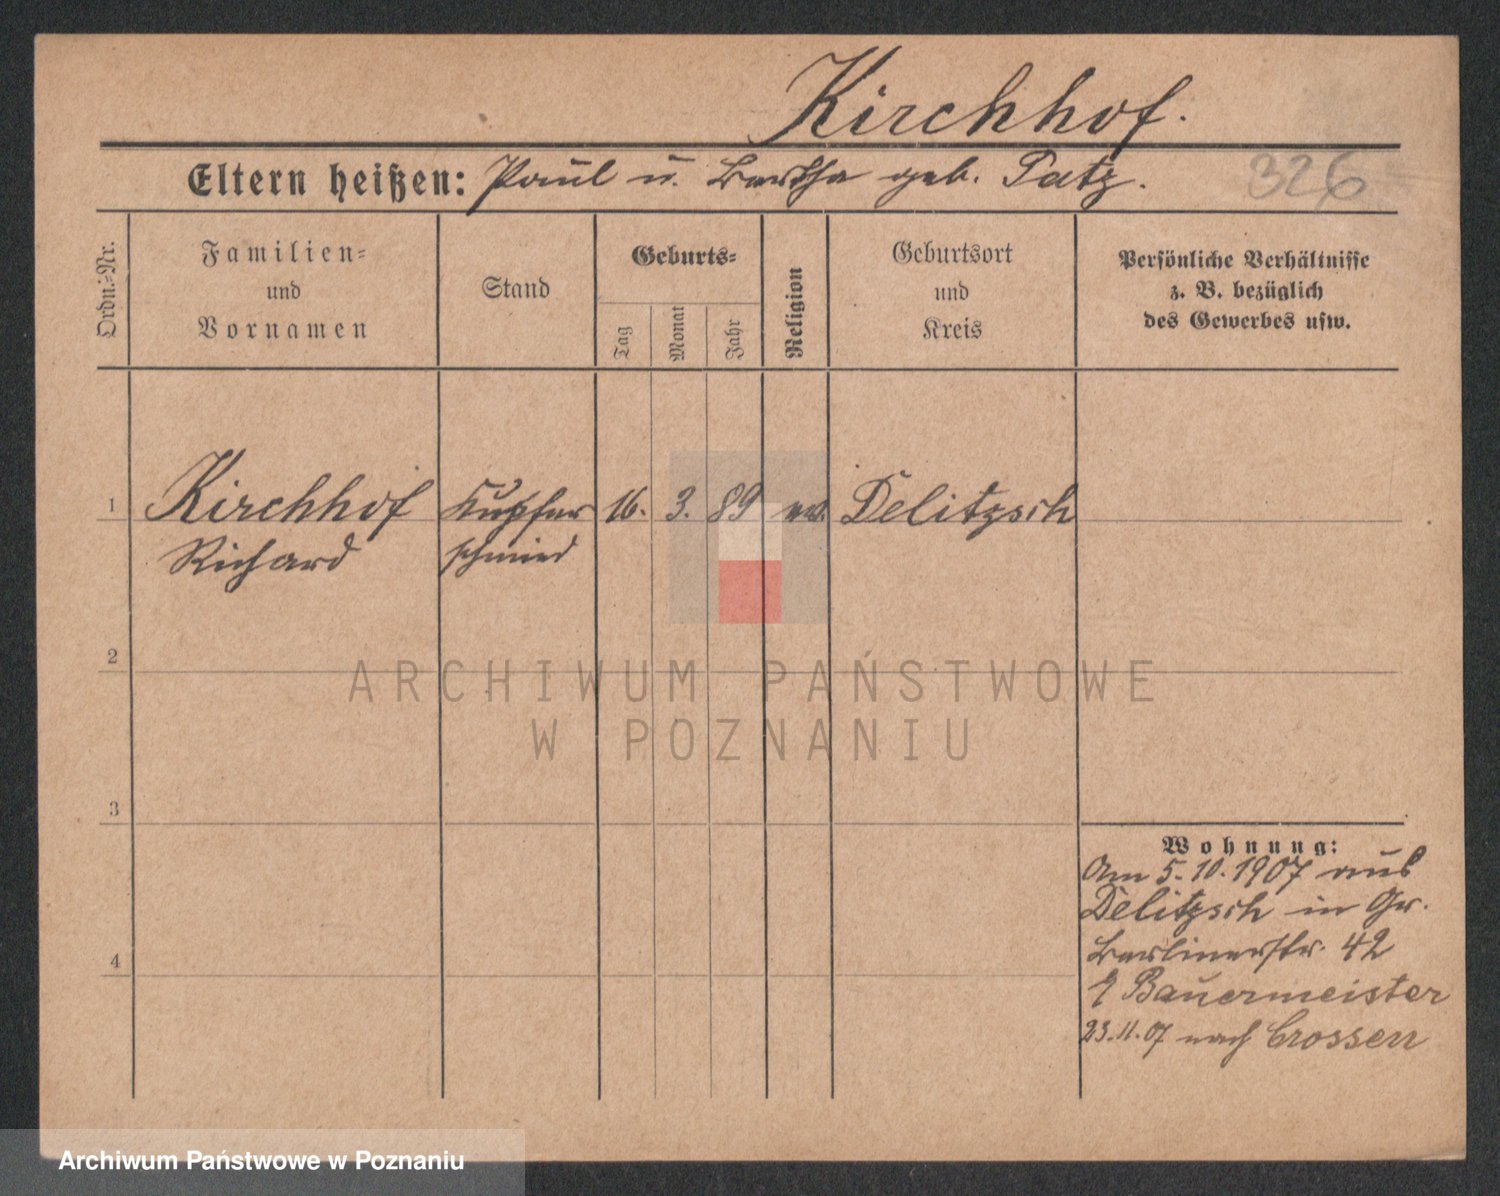 Kirchhof.
Eltern heißen: Paul u. Bertha geb. Patz.
326
Ordn.-Nr.
Familien-
und
Vornamen
Stand
Geburts-
Tag
Monat
Jahr
Religion
Geburtsort
und
Kreis
Persönliche Verhältnisse
z. B. bezüglich
des Gewerbes usw.
1
Kirchhof
Richard
Kupfer
schmied
16.
3.
89
ev.
Delitzsch
2
ARCHIWUM PAŃSTWOWE
W POZNANIU
3
4
Wohnung:
Am 5.10.1907 aus
Delitzsch in Gr.
Berlinerstr. 42
Bauermeister
23.11.07 nach Crossen
Archiwum Państwowe w Poznaniu